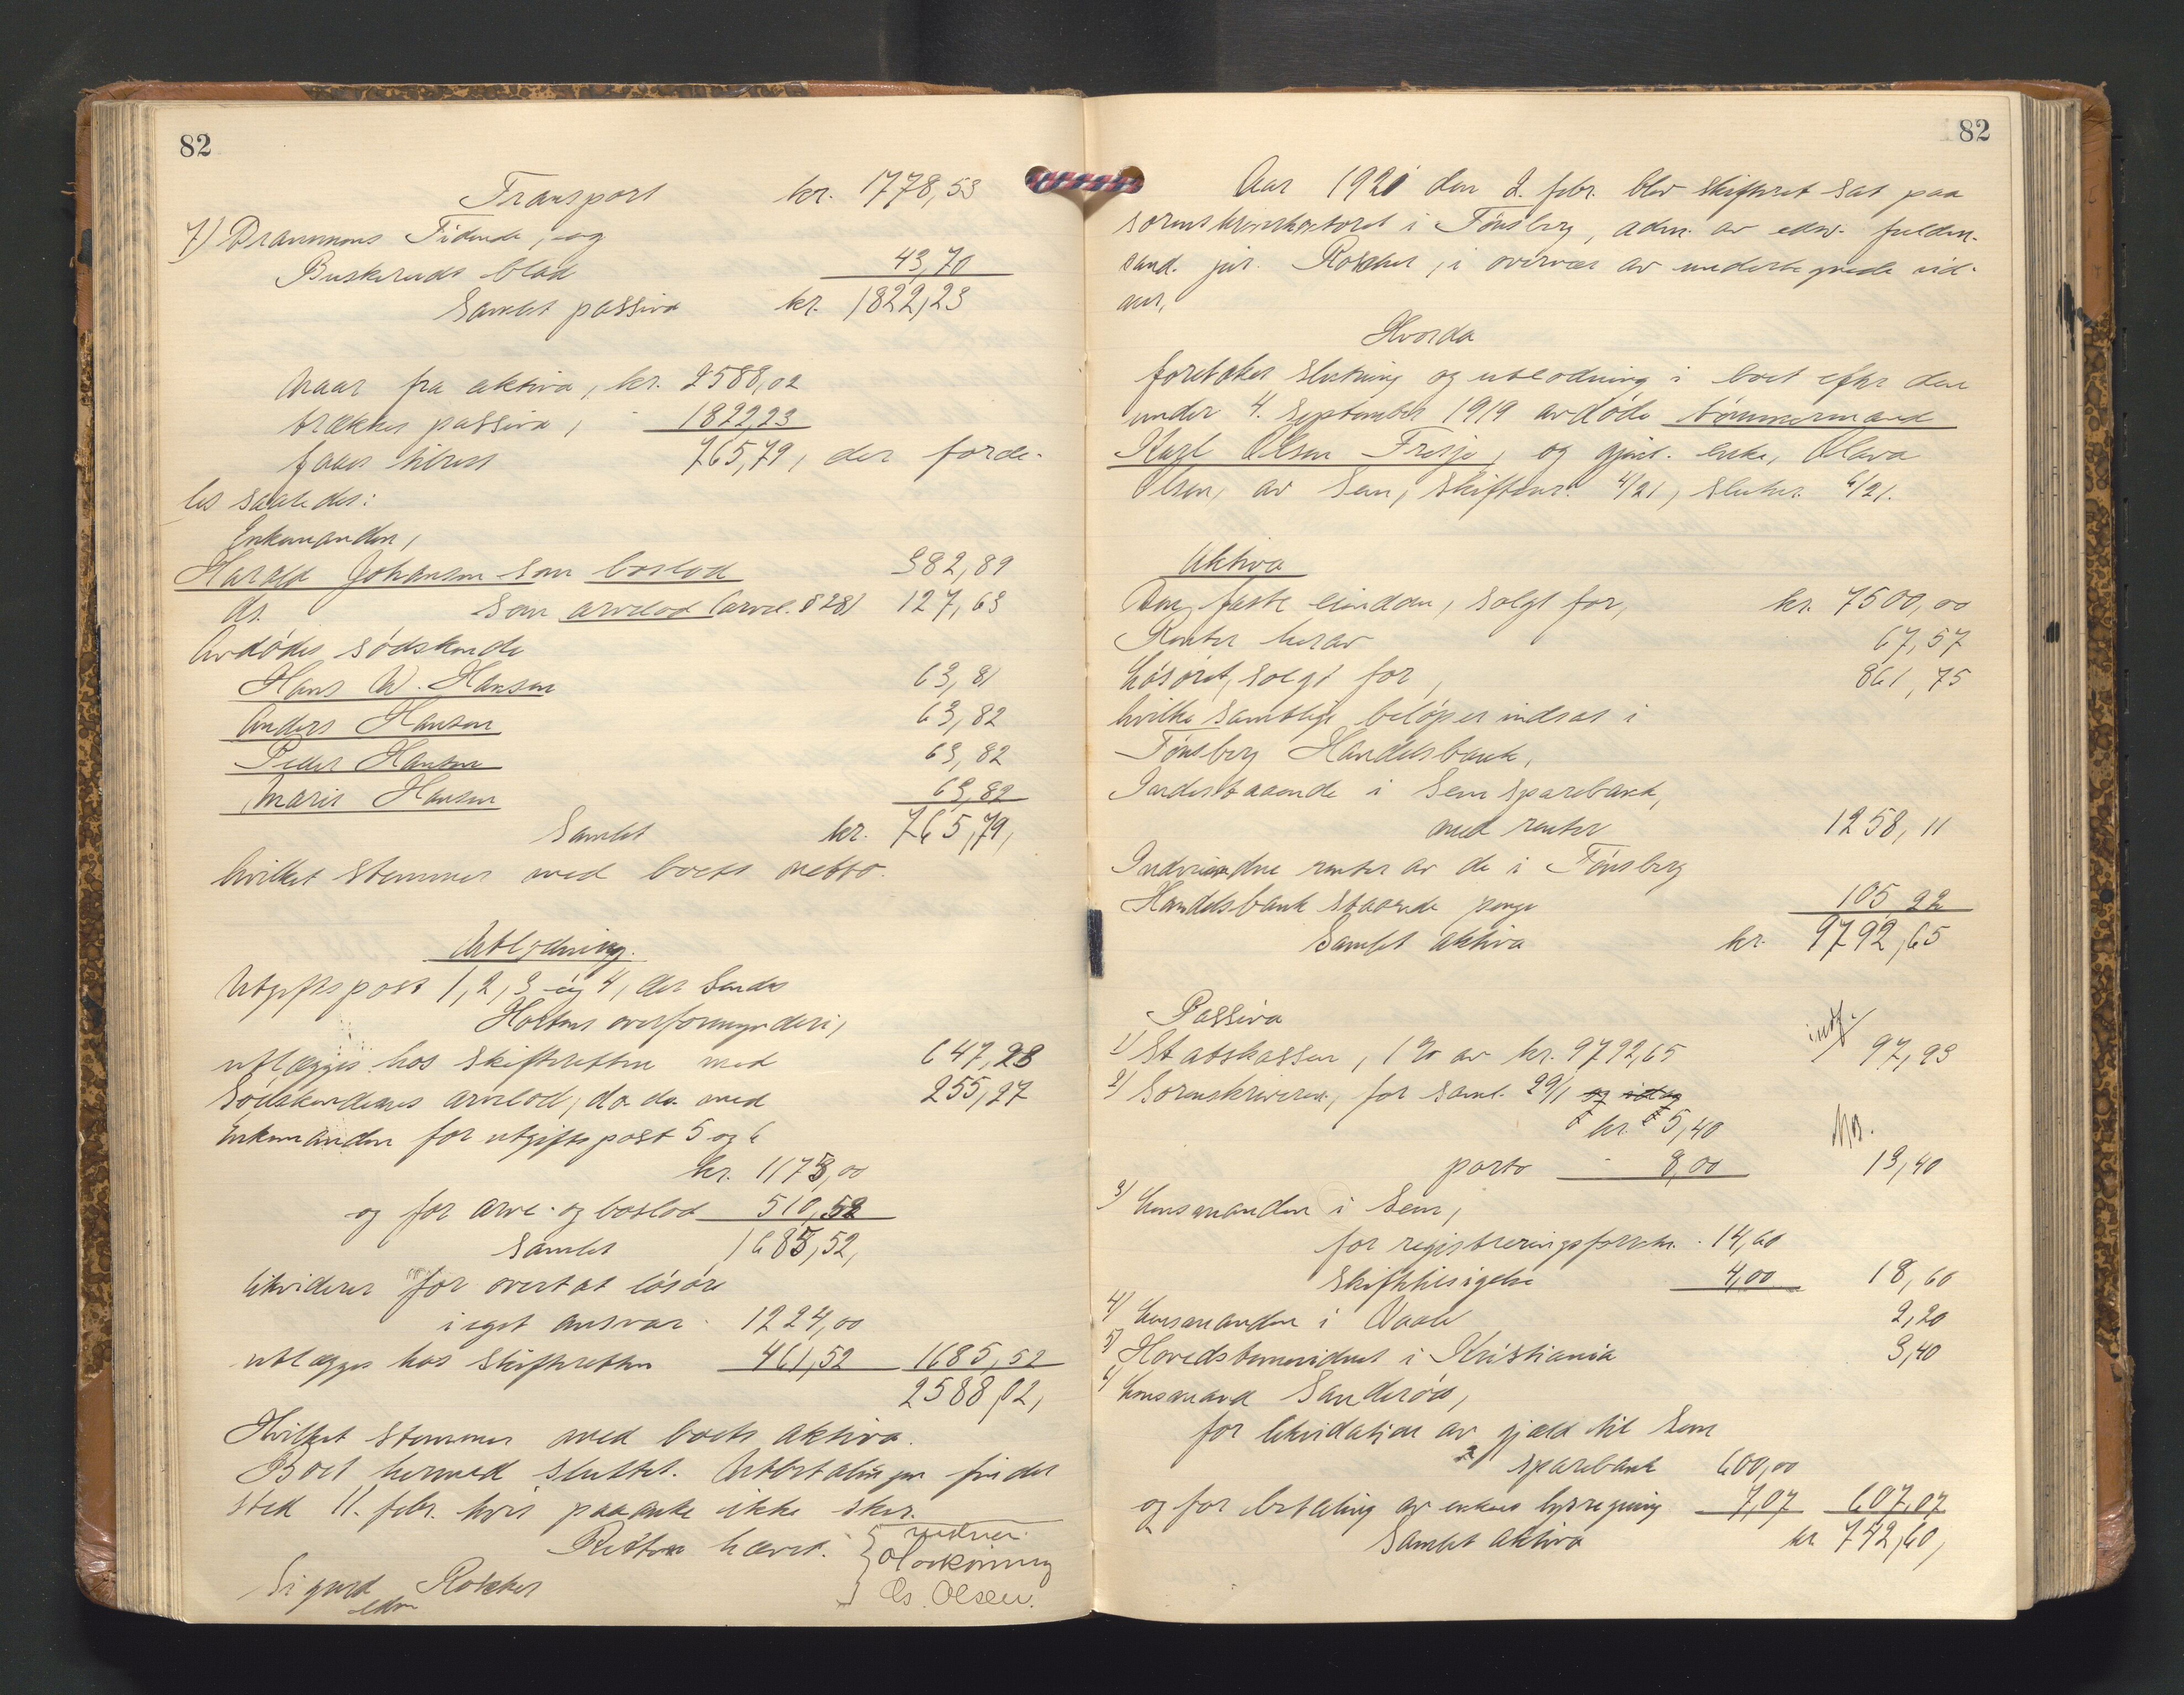 82
Transport kr. 1778,53
7) Drammens Tidende, og
Buskeruds blad 43,70
Samlet passiva kr. 1822,23
Naar fra aktiva, kr. 2588,02
trækkes passiva, - 1822,23
faaes tilrest 765,79, der forde-
les saaledes:
Enkemanden,
Harald Johansen som boslod 382,89
ds. som arvelod (arvel. § 28) 127,63
Avdødes sødskende
Hans W. Hansen 63,81
Anders Hansen 63,82
Peder Hansen 63,82
Marie Hansen 63,82
Samlet kr. 765,79,
hvilket stemmer med boets netto.
Utlodning.
Utgiftspost 1, 2, 3 og 4, der sendes
Hortens overformynderi,
utlægges hos skifteretten med 647,23
Sødskendenes arvelod, do do med 255,27
Enkemanden for utgiftspost 5 og 6
kr. 1175,00
og for arve- og boslod 510,52
Samlet 1685,52,
likvideres for overtat løsøre
i eget ansvar - 1224,00
utlægges hos skifteretten 461,52 1685,52
2588,02,
Hvilket stemmer med boets aktiva.
Boet hermed sluttet. Utbetalingen finder
sted 11. febr. hvis paaanke ikke sker.
Retten hævet.
vidner.
Os. Olsen.
Sigurd Rokker
edsv
82
Aar 1921 den 2. febr. blev skifteret sat paa
sorenskriverkontoret i Tønsberg, adm. av edsv. fuldm.
cand. jur. Rokker, i overvær av undertegnede vid-
ner,
Hvorda
foretokes slutning og utlodning i boet efter den
under 4. september 1919 avdøde tømmermand
Karl Olsen Fresje, og gjenl. enke, Olava
Olsen, av Sem, skiftenr. 4/21, slutnr. 6/21.
Aktiva
Den faste eiendom, solgt for, kr. 7500,00
Renter herav 67,57
Løsøret, solgt for, 861,75
hvilke samtlige beløper indsat i
Tønsberg Handelsbank,
Indestaaende i Sem sparebank,
med renter 1258,11
Indvundne renter av de i Tønsberg
Handelsbank staaende penge 105 22
Samlet aktiva kr. 9792,65
Passiva
1) Statskassen, 1 % av kr. 9792,65 indf. 97,93
2) Sorenskriveren, for saml. 29/1 og idag
kr. 5,40
porto - 8,00 13,40
3) Lensmanden i Sem,
for registreringsforretn. - 14,60
skiftetilsigelse 4,00 18,60
4) Lensmanden i Vaale 2,20
5) Hovedstevnevidnet i Kristiania 3,40
6) Lensmand Sanderød,
for likvidation av gjæld til Sem
sparebank 600,00
og for betaling av enkens lysregning 7,07 607,07
Samlet aktiva kr 742,60,